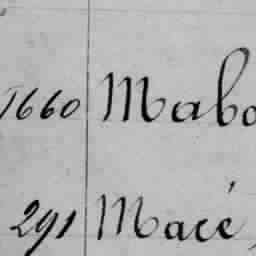 1660 Mabo
291 Macé